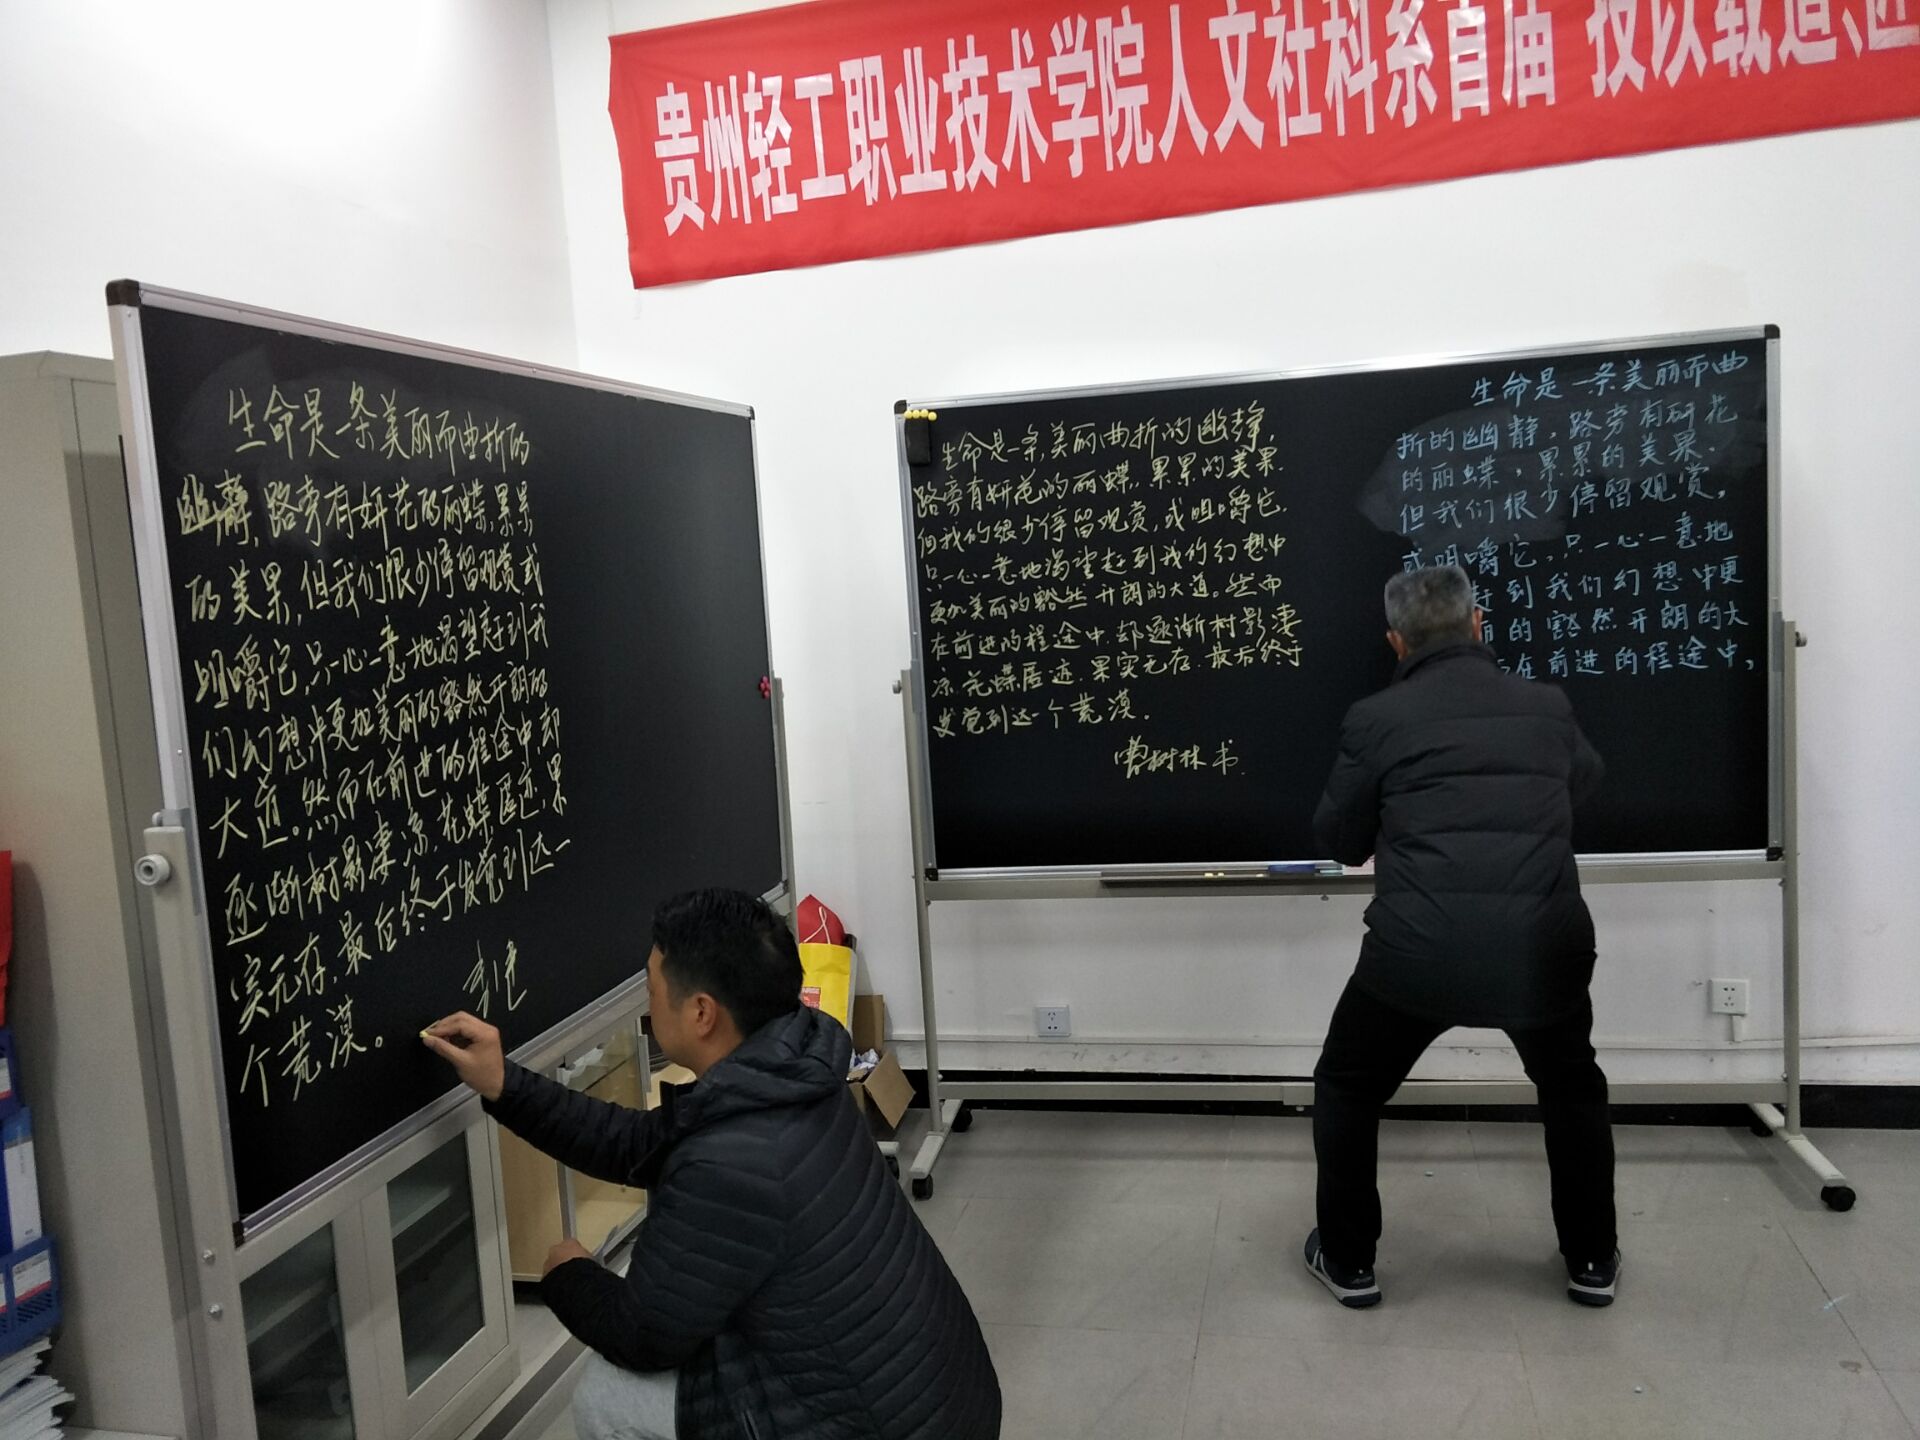 贵州轻工职业技术学院人文社科系首届 技以载道、匠
生命是一条美丽而曲折的
幽静,路旁有妍花的丽蝶,累累
的美果,但我们很少停留观赏,或
咀嚼它,只一心一意地渴望赶到我
们幻想中更加美丽的豁然开朗的
大道。然而在前进的程途中,却
逐渐树影凄凉,花蝶匿迹,果
实无存,最后终于发觉到达一
个荒漠。
生命是一条,美丽曲折的幽静,
路旁有妍花的丽蝶,累累的美果.
但我们很少停留观赏,或咀嚼它.
只一心一意地渴望赶到我们幻想中
更加美丽的豁然开朗的大道。然而
在前进的程途中,却逐渐树影凄
凉.花蝶匿迹.果实无存.最后终于
发觉到达一个荒漠.
曹树林书.
生命是一条美丽而曲
折的幽静,路旁有研花
的丽蝶,累累的美果.
但我们很少停留观赏,
或咀嚼它,只一心一意地
赶到我们幻想中更
丽的豁然开朗的大
在前进的程途中,